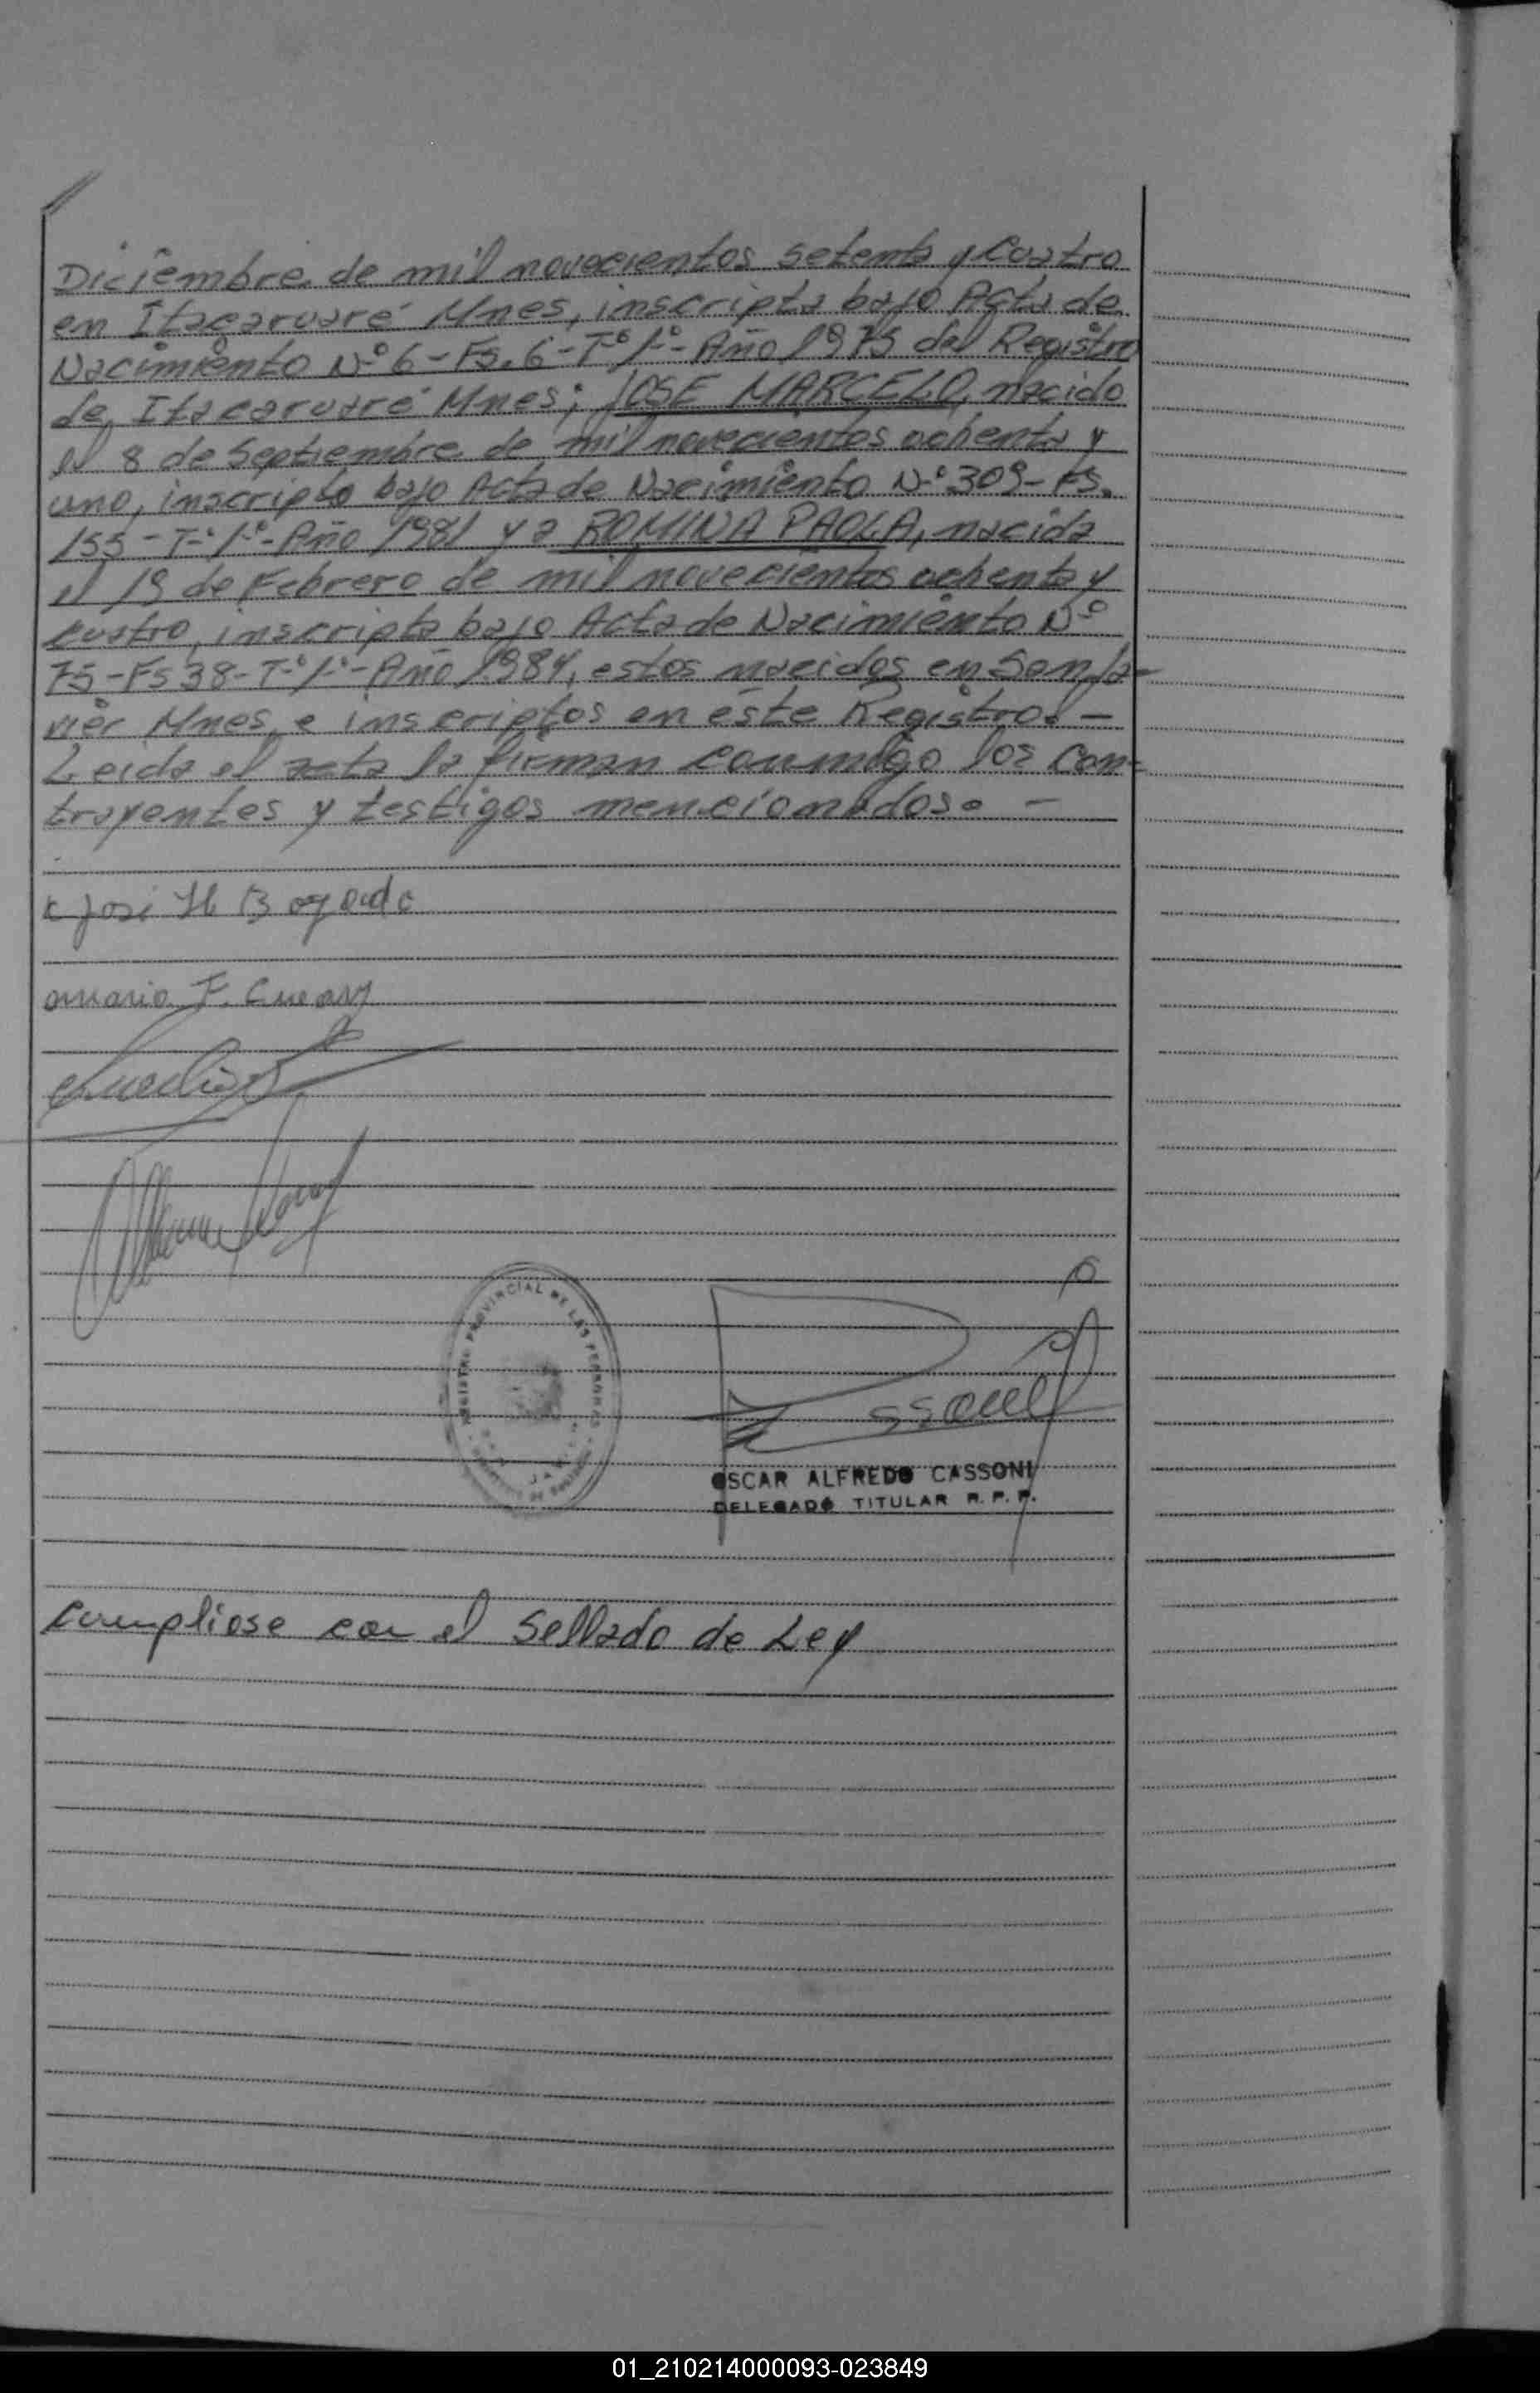 Diciembre de mil novecientos setenta y cuatro
en Itacaruaré Mnes, inscripta bajo Acta de
Nacimiento N° 6 - Fs. 6 - T° 1° - Año 1975 del Registro
de Itacaruaré Mnes; JOSE MARCELO, nacido
el 8 de Septiembre de mil novecientos ochenta y
uno, inscripto bajo Acta de Nacimiento N° 309 - Fs.
155 - T° 1° - Año 1981 y a ROMINA PAOLA, nacida
el 19 de Febrero de mil novecientos ochenta y
cuatro, inscripta bajo Acta de Nacimiento N°
75 - Fs 38 - T° 1° - Año 1984, estos nacidos en San Ja-
vier Mnes, e inscriptos en este Registro. -
Leida el acta la firman conmigo los con-
trayentes y testigos mencionados. -
José H Bogado
PROVINCIAL DE LAS PERSONAS
OSCAR ALFREDO CASSONI
DELEGADO TITULAR R. P. P.
Cumpliose con el Sellado de Ley
01_210214000093-023849